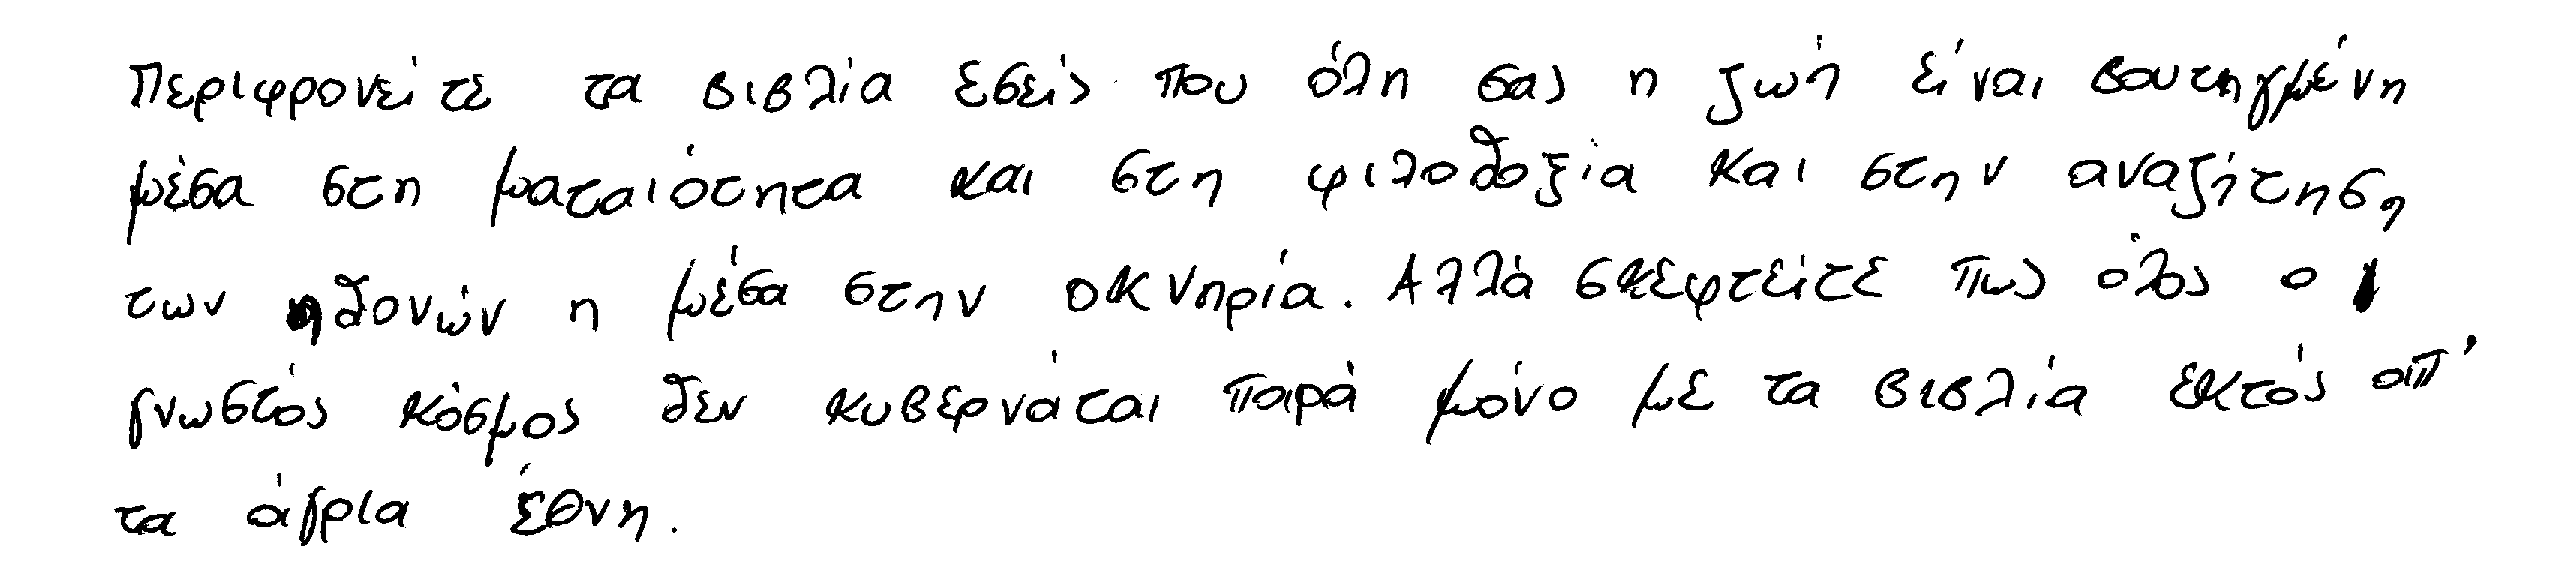 Περιφρονείτε τα βιβλία εσείς που όλη σας η ζωή είναι βουτηγμένη
μέσα στη ματαιότητα και στη φιλοδοξία και στην αναζήτηση
των ηδονών η μέσα στην οκνηρία. Αλλά σκεφτείτε πως όλος ο
γνωστός κόσμος δεν κυβερνάται παρά μόνο με τα βιβλία εκτός απ'
τα άγρια έθνη.